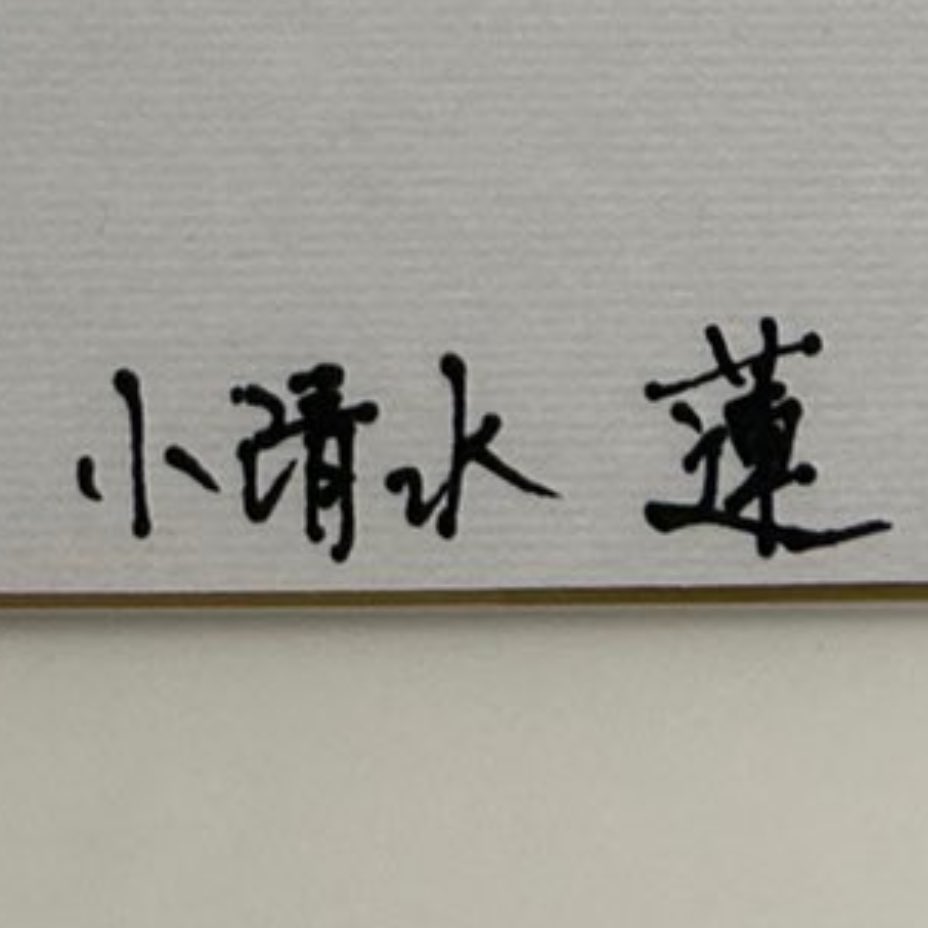 小清水 蓮